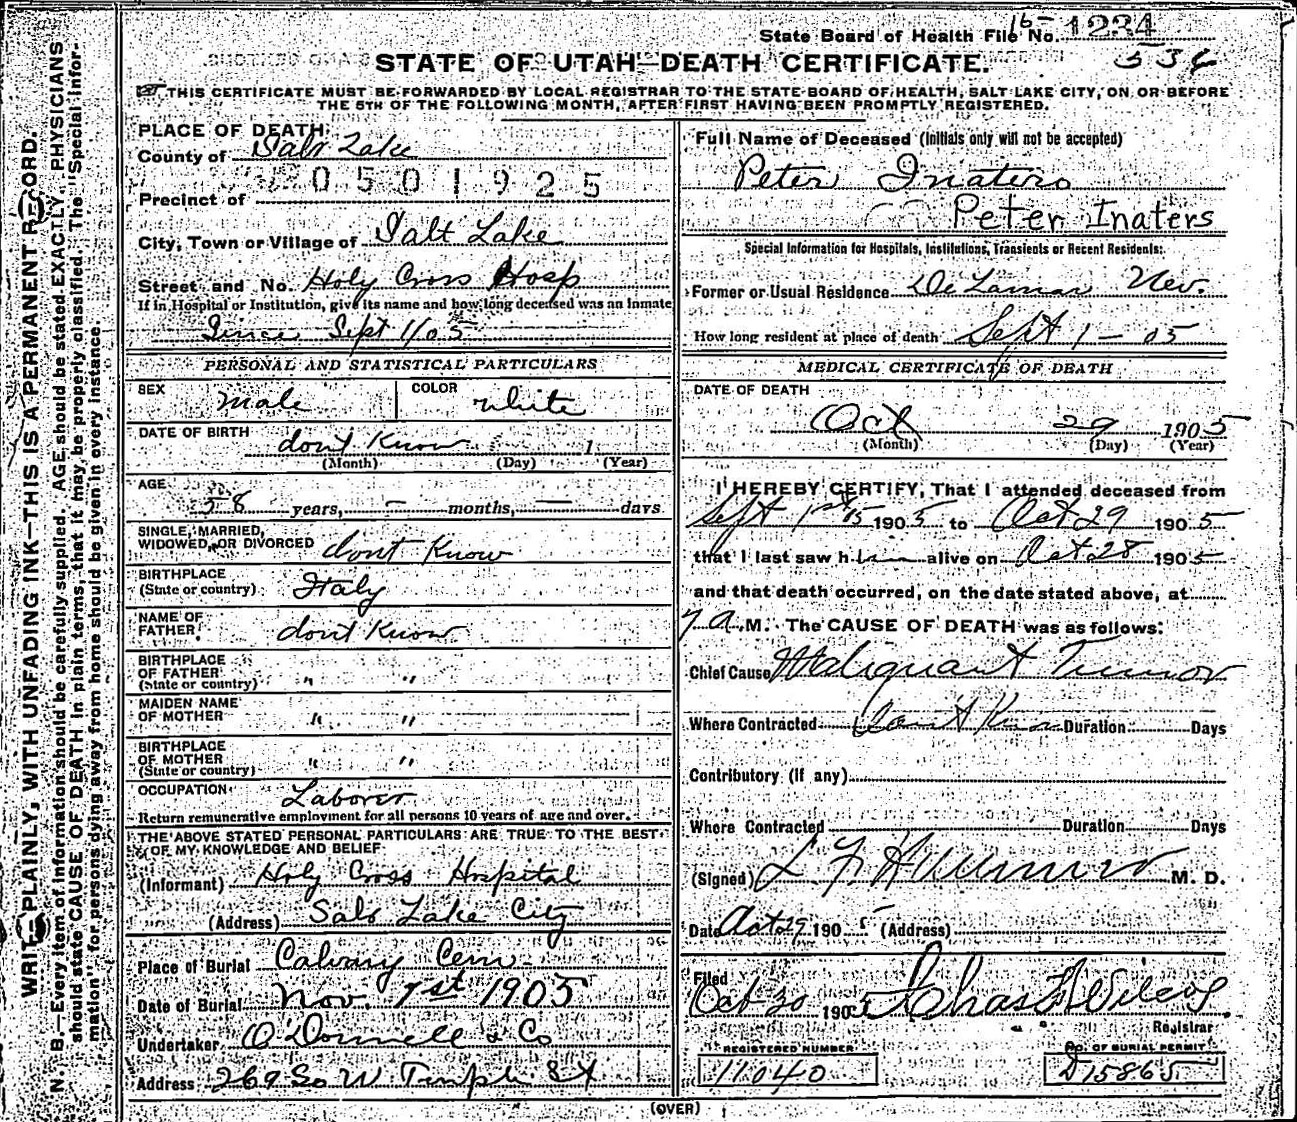 State Board of Health File No. 1234
536
STATE OF UTAH—DEATH CERTIFICATE.
THIS CERTIFICATE MUST BE FORWARDED BY LOCAL REGISTRAR TO THE STATE BOARD OF HEALTH, SALT LAKE CITY, ON OR BEFORE
THE 5TH OF THE FOLLOWING MONTH, AFTER FIRST HAVING BEEN PROMPTLY REGISTERED.
WRITE PLAINLY, WITH UNFADING INK—THIS IS A PERMANENT RECORD.
N. B.—Every item of information should be carefully supplied. AGE should be stated EXACTLY. PHYSICIANS
should state CAUSE OF DEATH in plain terms that it may be properly classified. The "Special Infor-
mation" for persons dying away from home should be given in every instance.
PLACE OF DEATH:
County of Salt Lake
0501925
Precinct of
City, Town or Village of Salt Lake
Street and No. Holy Cross Hosp
If in Hospital or Institution, give its name and how long deceased was an Inmate
Since Sept 1/05
PERSONAL AND STATISTICAL PARTICULARS
SEX Male COLOR White
DATE OF BIRTH don't Know 1
(Month) (Day) (Year)
AGE 58 years, — months, — days
SINGLE, MARRIED,
WIDOWED, OR DIVORCED dont Know
BIRTHPLACE
(State or country) Italy
NAME OF
FATHER don't Know
BIRTHPLACE
OF FATHER
(State or country) " "
MAIDEN NAME
OF MOTHER " "
BIRTHPLACE
OF MOTHER
(State or country) " "
OCCUPATION Laborer
Return remunerative employment for all persons 10 years of age and over.
THE ABOVE STATED PERSONAL PARTICULARS ARE TRUE TO THE BEST
OF MY KNOWLEDGE AND BELIEF
(Informant) Holy Cross Hospital
(Address) Salt Lake City
Place of Burial Calvary Cem.
Date of Burial Nov. 1st 1905
Undertaker O'Donnell & Co
Address 269 So W Temple St
Full Name of Deceased (Initials only will not be accepted)
Peter Inaters
Peter Inaters
Special Information for Hospitals, Institutions, Transients or Recent Residents:
Former or Usual Residence De Lamar Nev.
How long resident at place of death Sept 1 — 05
MEDICAL CERTIFICATE OF DEATH
DATE OF DEATH
Oct 29 1905
(Month) (Day) (Year)
I HEREBY CERTIFY, That I attended deceased from
Sept 1st 05 1905 to Oct 29 1905
that I last saw him alive on Oct 28 1905
and that death occurred, on the date stated above, at
7 A. M. The CAUSE OF DEATH was as follows:
Chief Cause Malignant Tumor
Where Contracted Don't Know Duration Days
Contributory (if any)
Where Contracted Duration Days
(Signed) M. D.
Date Oct 29 1905 (Address)
Filed
Oct 30 1905 Chas F Wilcox
Registrar
REGISTERED NUMBER
11040
No. OF BURIAL PERMIT
D15865
(OVER)